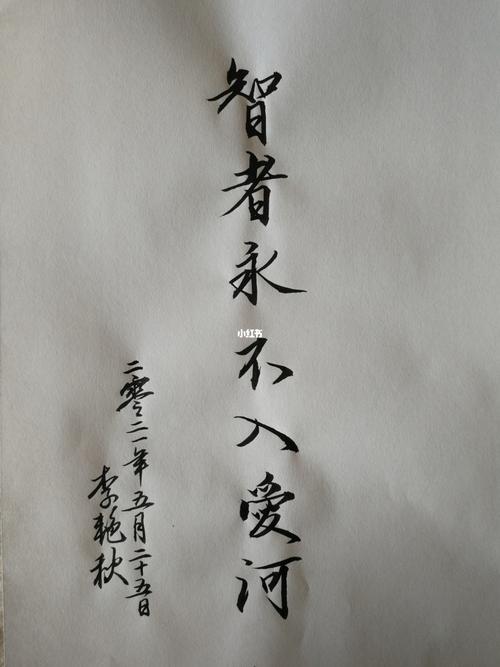 智者永不入愛河
二零二一年五月二十五日
李艳秋
小红书